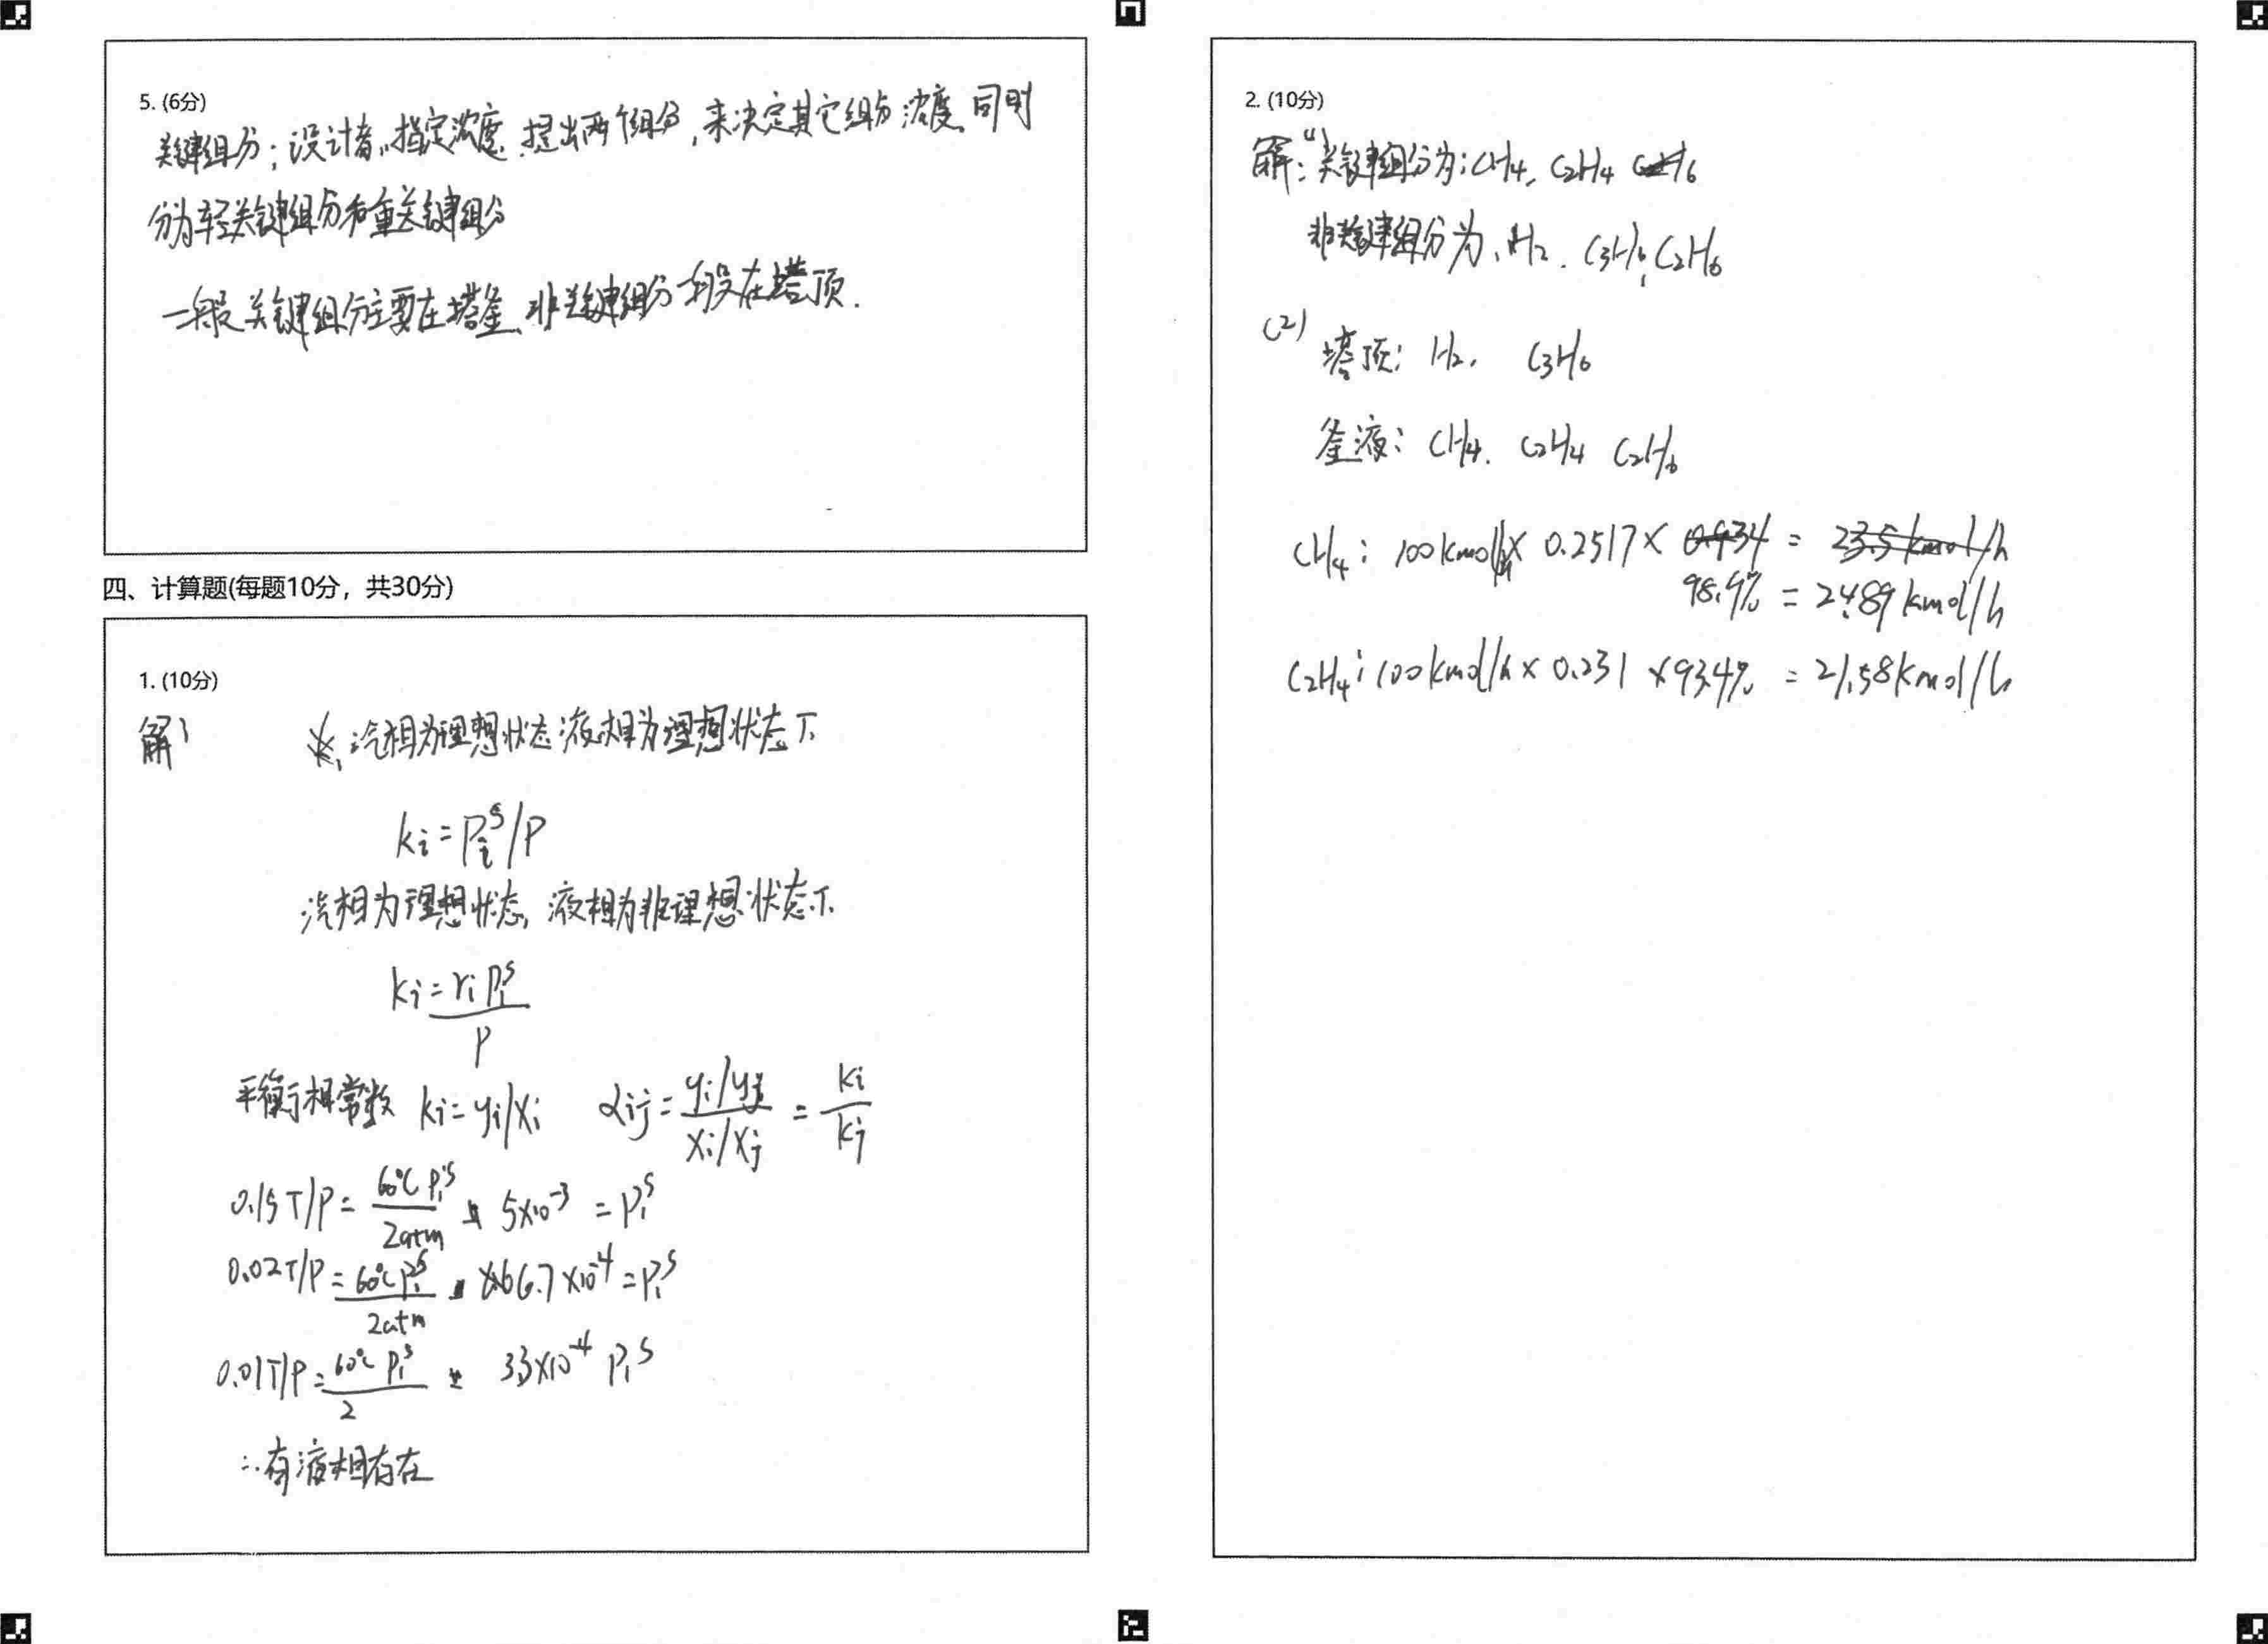 5. (6分)
关键组分：设计者，指定浓度，提出两个组分，来决定其它组分浓度。同时
分为轻关键组分和重关键组分
一般关键组分主要在塔釜，非关键组分一般在塔顶.
四、计算题(每题10分，共30分)
1. (10分)
解：
汽相为理想状态 液相为理想状态下
ki = Pi^s/P
汽相为理想状态，液相为非理想状态下
ki = ri Pi^s / P
平衡相常数 ki = yi/xi αij = (yi/yj)/(xi/xj) = ki/kj
0.15T/P = 60℃ P1^s / 2atm 5×10^-3 = P1^s
0.02T/P = 60℃ P1^s / 2atm 66.7×10^-4 = P1^s
0.01T/P = 60℃ P1^s / 2 33×10^-4 P1^s
∴有液相存在
2. (10分)
解：(1) 关键组分为：CH4, C2H4
非关键组分为，H2. C3H6, C2H6
(2)
塔顶：H2, C3H6
釜液：CH4. C2H4 C2H6
CH4：100kmol/h × 0.2517 × 0.934 = 23.5 kmol/h
98.9% = 24.89 kmol/h
C2H4：100kmol/h × 0.231 × 93.4% = 21.58kmol/h